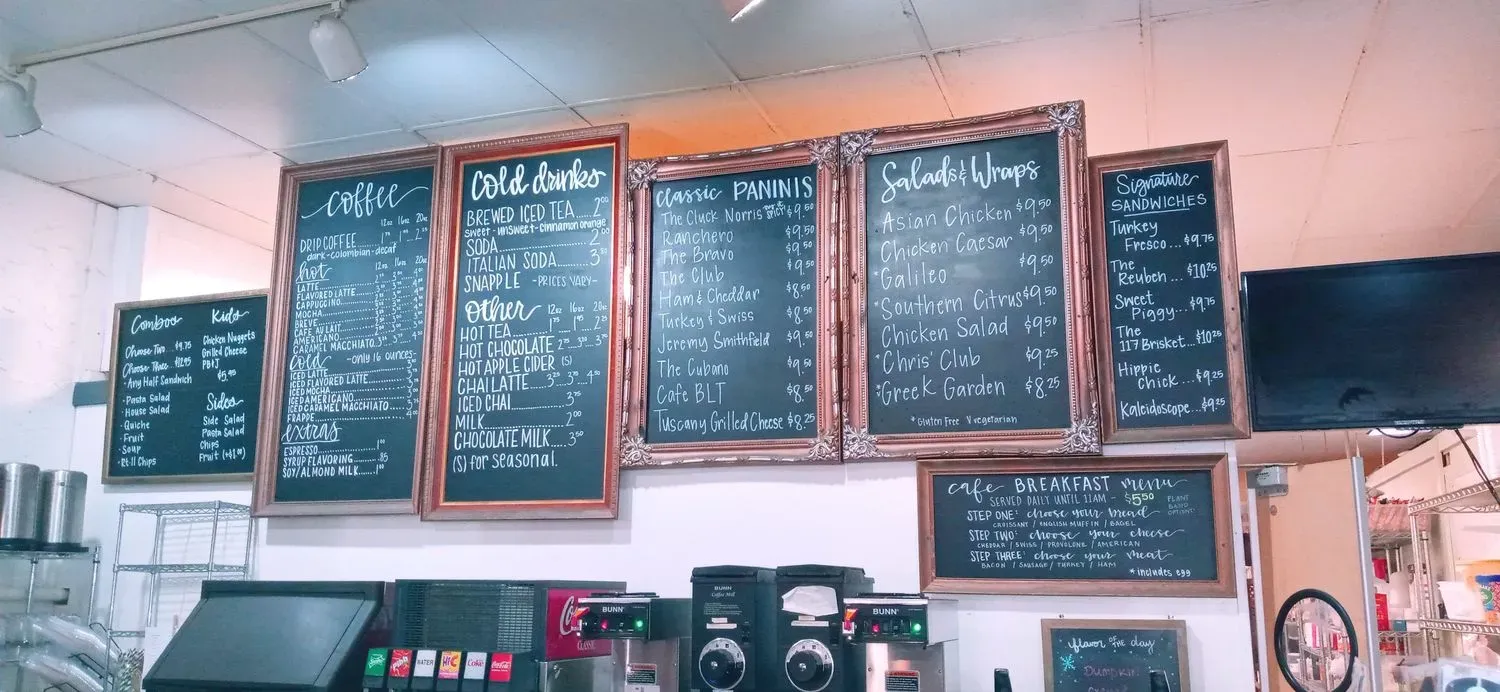 Combos
Choose Two $9.75
Choose Three $12.95
· Any Half Sandwich
· Pasta Salad
· House Salad
· Quiche
· Fruit
· Soup
· Rt.11 Chips
Kids
Chicken Nuggets
Grilled Cheese
PB+J
$5.95
Sides
Side Salad
Pasta Salad
Chips
Fruit (+$1.00)
coffee
12oz 16oz 20oz
DRIP COFFEE
dark-colombian-decaf
hot 12oz 16oz 20oz
LATTE
FLAVORED LATTE
CAPPUCCINO
MOCHA
BREVE
CAFE AU LAIT
AMERICANO
CARAMEL MACCHIATO
cold -only 16 ounces-
ICED LATTE
ICED FLAVORED LATTE
ICED MOCHA
ICED AMERICANO
ICED CARAMEL MACCHIATO
FRAPPE
extras
ESPRESSO 1.00
SYRUP FLAVORING .85
SOY/ALMOND MILK 1.00
cold drinks
BREWED ICED TEA 2.00
sweet-unsweet-cinnamon orange
SODA 2.00
ITALIAN SODA 3.50
SNAPPLE -PRICES VARY-
other 12oz 16oz 20oz
HOT TEA 1.75 1.95 2.25
HOT CHOCOLATE
HOT APPLE CIDER (S)
CHAI LATTE
ICED CHAI 3.75
MILK 2.00
CHOCOLATE MILK 3.50
(S) for seasonal.
classic PANINIS
The Cluck Norris $9.50
Ranchero $9.50
The Bravo $9.50
The Club $9.50
Ham & Cheddar $8.50
Turkey & Swiss $8.50
Jeremy Smithfield $9.50
The Cubano $9.50
Cafe BLT $8.50
Tuscany Grilled Cheese $8.25
Salads & Wraps
Asian Chicken $9.50
Chicken Caesar $9.50
*Galileo $9.50
*Southern Citrus $9.50
Chicken Salad $9.50
*Chris' Club $9.25
*Greek Garden $8.25
*Gluten Free V vegetarian
Signature
SANDWICHES
Turkey
Fresco...$9.75
The
Reuben...$10.25
Sweet
Piggy...$9.75
The
117 Brisket...$10.25
Hippie
Chick...$9.25
Kaleidoscope...$9.25
cafe BREAKFAST menu
SERVED DAILY UNTIL 11AM - $5.50
PLANT
BASED
OPTION!
STEP ONE: choose your bread
CROISSANT / ENGLISH MUFFIN / BAGEL
STEP TWO: choose your cheese
CHEDDAR / SWISS / PROVOLONE / AMERICAN
STEP THREE: choose your meat
BACON / SAUSAGE / TURKEY / HAM
*includes egg
flavor OF THE day
PUMPKIN
BUNN
Coffee Mill
BUNN
BUNN
CLASSIC
WATER
Hi-C
Coke